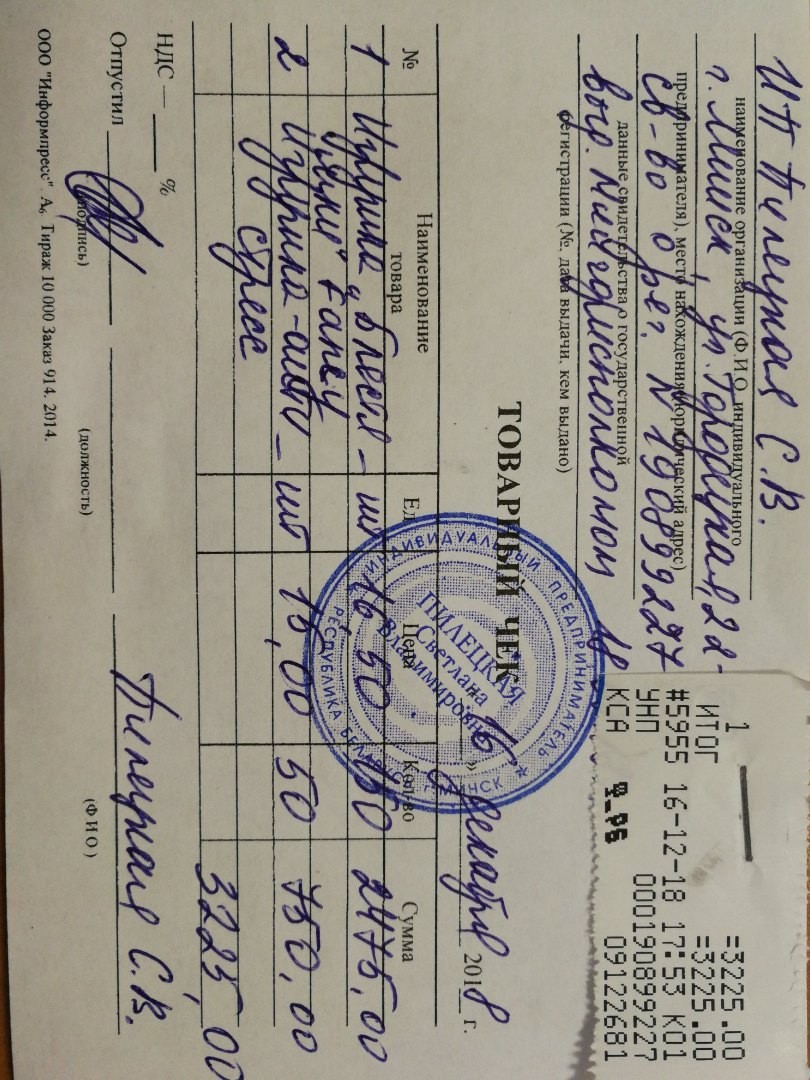 ИП Пилецкая С.В.
наименование организации (Ф.И.О. индивидуального
г. Минск, ул. Городецкая, 2а-
предпринимателя), место нахождения (юридический адрес),
св-во о рег. N 190899227
данные свидетельства о государственной
выд. Мингорисполкомом
регистрации (№, дата выдачи, кем выдано)
1 =3225.00
ИТОГ =3225.00
#5955 16-12-18 17:53 К01
УНП 000190899227
КСА 09122681
ТОВАРНЫЙ ЧЕК
"16" декабря 2018 г.
ИНДИВИДУАЛЬНЫЙ ПРЕДПРИНИМАТЕЛЬ
РЕСПУБЛИКА БЕЛАРУСЬ МИНСК
ПИЛЕЦКАЯ
Светлана
Владимировна
№ Наименование товара Ед. Цена Кол-во Сумма
1 Игрушка "Fancy" шт 16,50 150 2475,00
2 Игрушка-анти- шт 15,00 50 750,00
стресс
3225,00
НДС — ___ %
Отпустил Пилецкая С.В.
(подпись) (должность) (ФИО)
ООО "Информпресс". А₆. Тираж 10 000 Заказ 914. 2014.